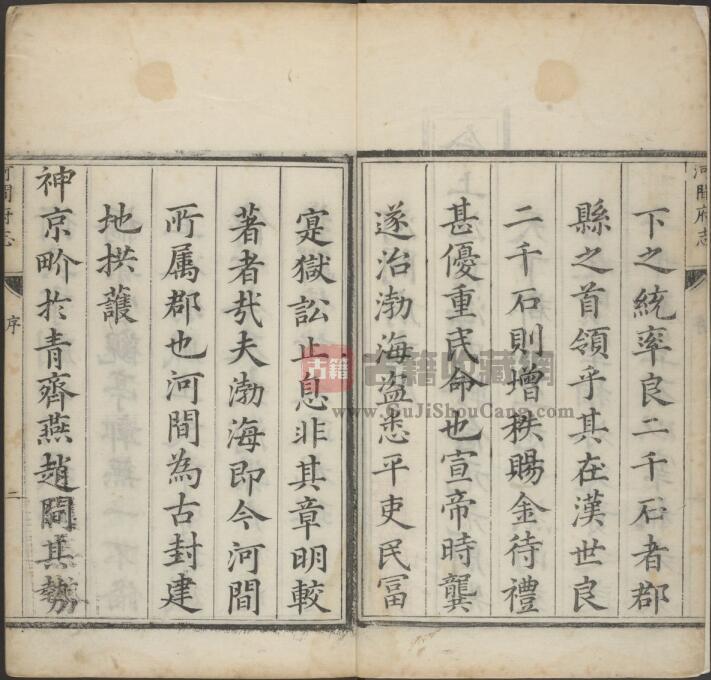 河間府志
下之統率良二千石者郡
縣之首領乎其在漢世良
二千石則增秩賜金待禮
甚優重民命也宣帝時龔
遂治渤海盜悉平吏民冨
寔獄訟止息非其章明較
著者㢤夫渤海即今河間
所属郡也河間為古封建
地拱䕶
神京畍扵青齊燕趙間其勢
河間府志
序
二
古籍
古籍收藏网
www.GuJiShouCang.com